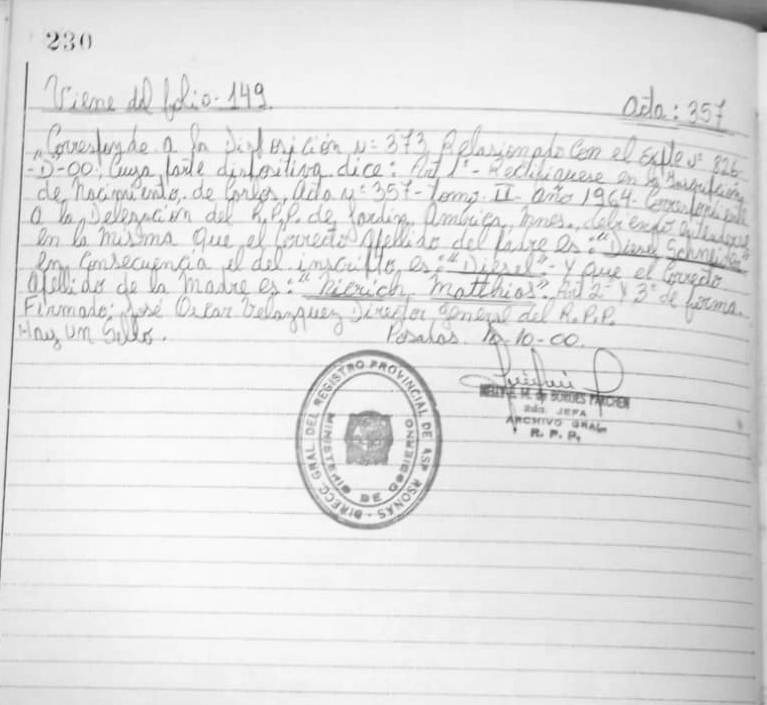 230
Viene del folio - 149.
Acta: 357
Corresponde a la Disposición Nº 373 Relasionado Con el Expte Nº 826-
"D"-00. Cuya parte dispositiva dice: Art 1º - Rectifiquese en la Inscripción
de Nacimiento, de Carlos, Acta Nº 357 - Tomo II - año 1964 - Correspondiente
a la Delegación del R.P.P. de Jardin América, Mnes., debiendo
en la misma que el Correcto Apellido del Padre es: "Diesel Schneider"
en Consecuencia el del inscripto es: "Diesel" - Y que el Correcto
Apellido de la Madre es: "Matthios". Art 2º y 3º de forma.
Firmado: José Oscar Velazquez Director General del R.P.P.
Hay un Sello. Posadas 10-10-00.
NELLY S. M. de BORDES PARCHEN
2da. JEFA
ARCHIVO GRAL.
R. P. P.
DIRECC. GRAL. DEL REGISTRO PROVINCIAL DE
MINISTERIO DE GOBIERNO